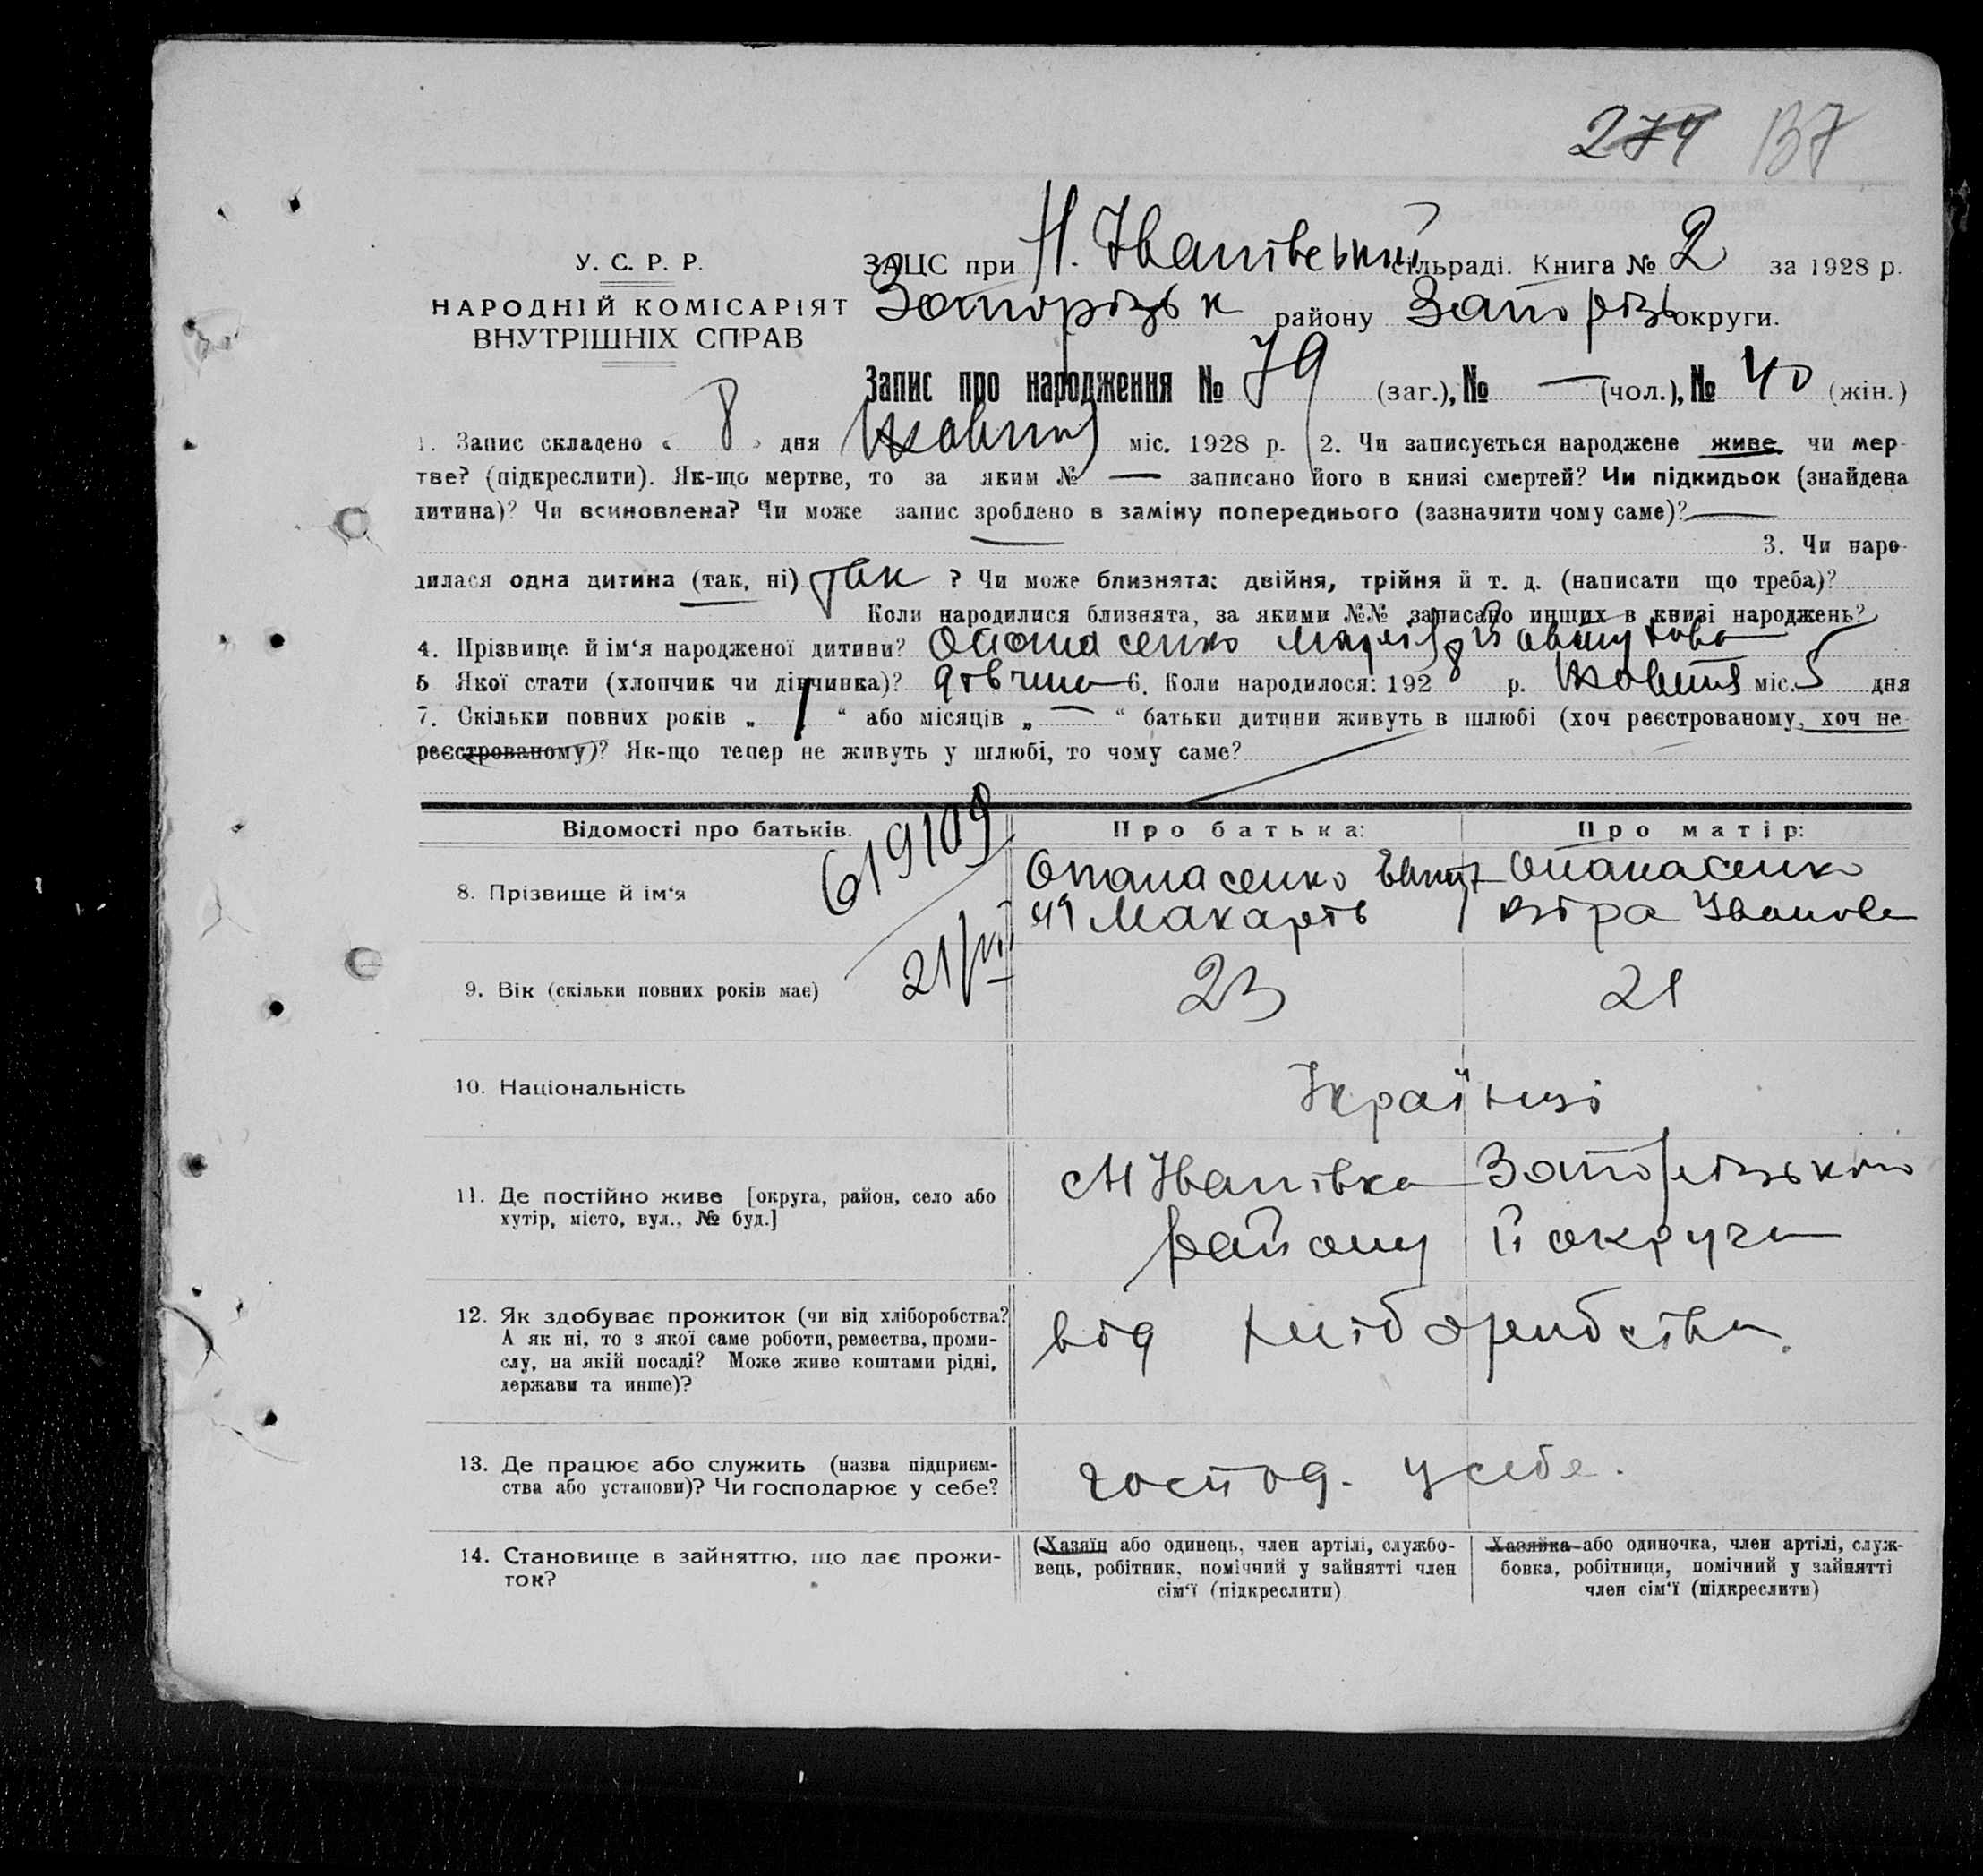 274 137
У. С. Р. Р.
НАРОДНІЙ КОМІСАРІЯТ
ВНУТРІШНІХ СПРАВ
ЗАЦС при Н. Іванівській сільраді. Книга № 2 за 1928 р.
Запорізьк району Запорізь округи.
Запис про народження № 79 (заг.), № — (чол.), № 40 (жін.)
1. Запис складено « 8 » дня Жовтня міс. 1928 р. 2. Чи записується народжене живе чи мер-
тве? (підкреслити). Як-що мертве, то за яким № — записано його в книзі смертей? Чи підкидьок (знайдена
дитина)? Чи всиновлена? Чи може запис зроблено в заміну попереднього (зазначити чому саме)? —
3. Чи наро-
дилася одна дитина (так, ні) так ? Чи може близнята: двійня, трійня й т. д. (написати що треба)?
Коли народилися близнята, за якими №№ записано инших в книзі народжень?
4. Прізвище й ім‘я народженої дитини? Опанасенко Марія
5 Якої стати (хлопчик чи дівчинка)? дівчина 6. Коли народилося: 192 8 р. Жовтня міс. 5 дня
7. Скільки повних років „ 1 “ або місяців „ — “ батьки дитини живуть в шлюбі (хоч реєстрованому, хоч не
реєстрованому)? Як-що тепер не живуть у шлюбі, то чому саме?
Відомості про батьків. Про батька: Про матір:
619109
21/VII
8. Прізвище й ім‘я
Опанасенко Опанасенко
Макарів Віра Іванова
9. Вік (скільки повних років має) 23 21
10. Національність Українці
11. Де постійно живе [округа, район, село або
хутір, місто, вул., № буд.]
Н Іванівка Запорізького
району й округи
12. Як здобуває прожиток (чи від хліборобства?
А як ні, то з якої саме роботи, ремества, проми-
слу, на якій посаді? Може живе коштами рідні,
держави та инше)?
від хліборобства.
13. Де працює або служить (назва підприєм-
ства або установи)? Чи господарює у себе?
господ. у себе.
14. Становище в зайняттю, що дає прожи-
ток?
(Хазяїн або одинець, член артілі, службо-
вець, робітник, помічний у зайнятті член
сім‘ї (підкреслити)
Хазяйка або одиночка, член артілі, служ-
бовка, робітниця, помічний у зайнятті
член сім‘ї (підкреслити)